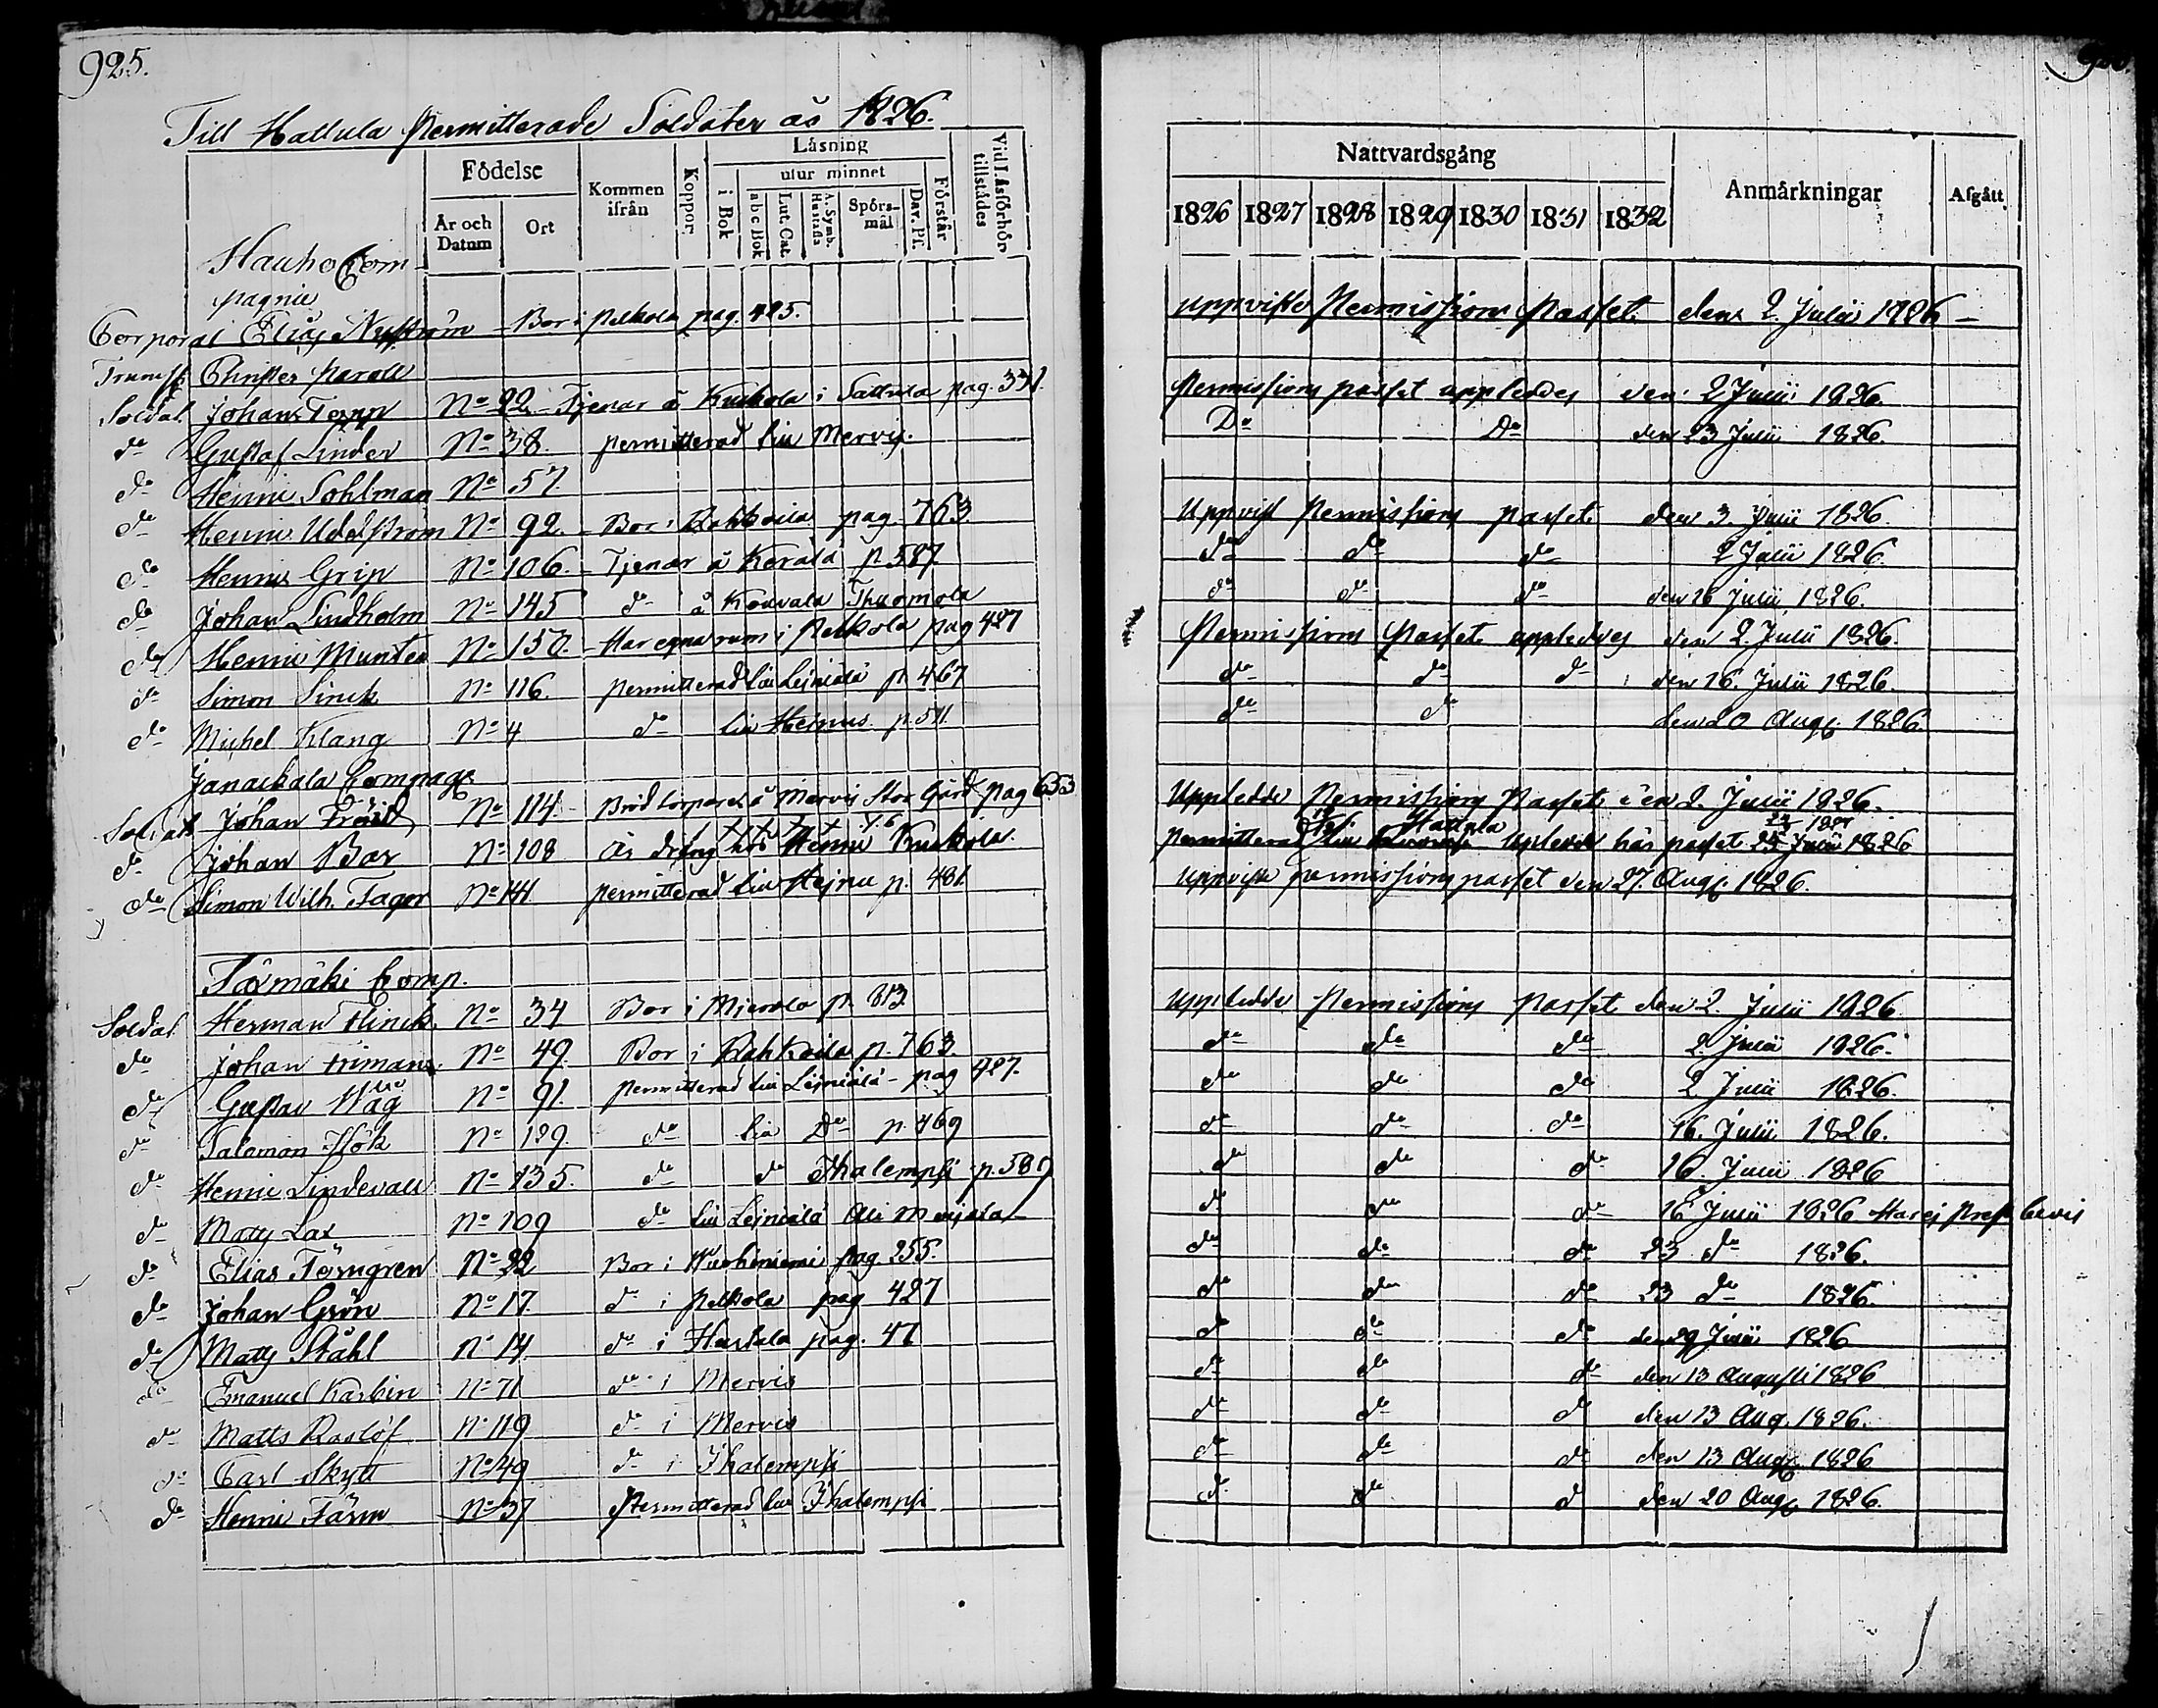 925.
Till Hattula Permitterade Soldater åo 1826.
Födelse
Kommen ifrån
Koppor
Läsning
utur minnet
i Bok
abc Bok
Lut. Cat.
A. Symb. Hustafla
Spörsmål
Dav. Ps.
Förstår
Vid Läsförhör tillstädes
År och Datum
Ort
Hauho Com-
pagnie
Corporal Elias Nyström - Bor i Pelkola pag. 425.
Christer Parole
Soldat Johan Topp No 22 - Tjenar å Kuckola i Sattula pag. 331.
do Gustaf Linder No 38. permitterad till Mervis.
do Henric Sohlman No 57.
do Henric Uddström No 92. - Bor i Rahkoila pag. 763.
do Henric Grip No 106. - Tjenar å Kerala p. 587.
do Johan Lindholm No 145 do å Kouvala Thuomola
do Henric Munter No 150. - Har egna rum i Pelkola pag 427
do Simon Sinck No 116. permitterad till Lejniälä p. 467
do Michel Klang No 4 do till Hejnus p. 511.
Janackala Compag.
Soldat Johan Fröid No 114. - på Mervis Stor Gård pag 653
do Johan Bar No 108 Är dräng hos Henric Kuckola.
do Simon Wilh. Fager No 141 permitterad till Hejnu p. 481.
Comp.
Soldat Herman Flinck No 34 Bor i Mierola p. 813
do Johan No 49. Bor i Rahkoila p. 763.
do Gustav Våg No 91. permitterad till Lejniälä - pag 427.
do Salomon Hök No 129. do till Do p. 469
do Henric Lindevall No 135. do do Ihalempsi p. 589
do Matts Lax No 109 do till Lejniälä Ali Marjala
do Elias Törngren No 22 Bor i Wuohiniemi pag. 255.
do Johan Grön No 17. do i Pelkola pag 427
do Matts Ståhl No 14 do i Hurtala pag. 47
do Emanuel Karbin No 71 do i Mervis
do Matts Roslöf No 119 do i Mervis
do Carl Skytt No 49 do i Ihalempsi
do Henric Färm No 37 Permitterad till Ihalempsi
Nattvardsgång
Anmärkningar
Afgått
1826 1827 1828 1829 1830 1831 1832
uppviste Permissions Passet den 2. Julii 1826 -
Permissions passet uppleddes den 2 Julii 1826.
Do Do den 23 Julii 1826.
Uppvist Permissions passet den 3. Julii 1826.
do do do 2 Julii 1826.
do do do den 16 Julii 1826.
Permissions Passet uppleddes den 2. Julii 1826.
do do do den 16. Julii 1826.
do do den 20 Aug. 1826.
Uppledde Permissions Passet den 2. Julii 1826.
Hattula 1827
Permitterad till upledde här passet 23 Julii 1826
uppviste permissions passet den 27. Aug. 1826.
uppledde Permissions Passet den 2. Julii 1826
do do do 2. Julii 1826.
do do do 2. Julii 1826.
do do do 16. Julii 1826.
do do do 16 Julii 1826
do do do 16 Julii 1826 Har ej Prest bevis
do do do 23 do 1826.
do do do 23 do 1826.
do do do den 29 Julii 1826
do do do den 13 Augusti 1826
do do do den 13 Aug. 1826.
do do do den 13 Aug. 1826
do do do den 20 Aug. 1826.